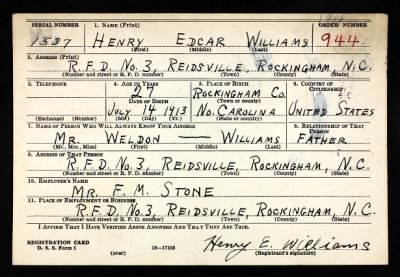 SERIAL NUMBER 1. NAME (Print) ORDER NUMBER
1537 HENRY EDGAR WILLIAMS 944
(First) (Middle) (Last)
2. ADDRESS (Print)
R.F.D. No. 3, REIDSVILLE, ROCKINGHAM, N.C.
(Number and street or R. F. D. number) (Town) (County) (State)
3. TELEPHONE 4. AGE IN YEARS 5. PLACE OF BIRTH 6. COUNTRY OF CITIZENSHIP
27 ROCKINGHAM CO.
DATE OF BIRTH (Town or county)
JULY 14 1913 NO. CAROLINA UNITED STATES
(Exchange) (Number) (Mo.) (Day) (Yr.) (State or country)
7. NAME OF PERSON WHO WILL ALWAYS KNOW YOUR ADDRESS 8. RELATIONSHIP OF THAT PERSON
MR. WELDON — WILLIAMS FATHER
(Mr., Mrs., Miss) (First) (Middle) (Last)
9. ADDRESS OF THAT PERSON
R.F.D. No. 3, REIDSVILLE, ROCKINGHAM, N.C.
(Number and street or R. F. D. number) (Town) (County) (State)
10. EMPLOYER'S NAME
MR. F. M. STONE
11. PLACE OF EMPLOYMENT OR BUSINESS
R.F.D. No. 3, REIDSVILLE, ROCKINGHAM, N.C.
(Number and street or R. F. D. number) (Town) (County) (State)
I AFFIRM THAT I HAVE VERIFIED ABOVE ANSWERS AND THAT THEY ARE TRUE.
REGISTRATION CARD
D. S. S. Form 1 16—17105 Henry E. Williams
(over) (Registrant's signature)